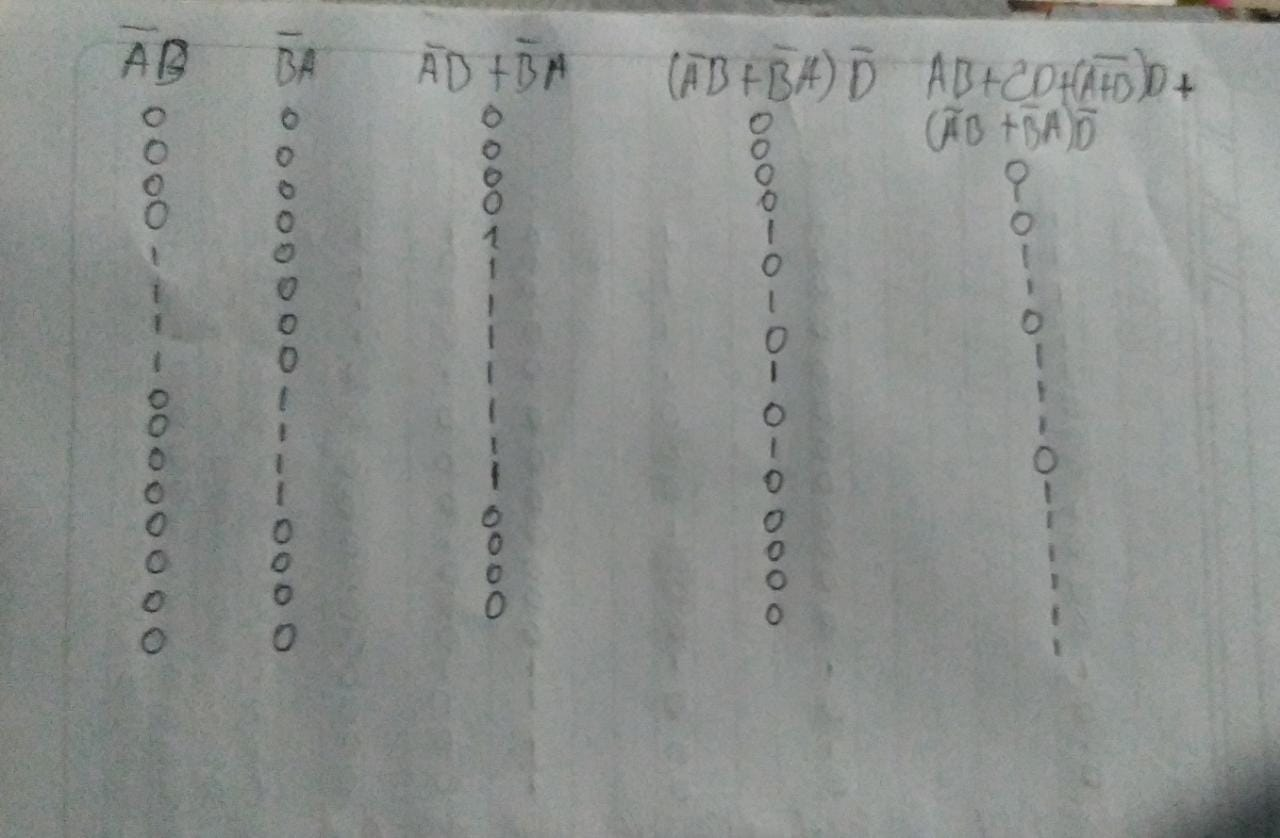 A̅B B̅A A̅B + B̅A (A̅B + B̅A) D̅ AB + CD + (A̅+̅B̅)D +
(A̅B + B̅A)D̅
0 0 0 0 0
0 0 0 0 0
0 0 0 0 1
0 0 0 0 1
1 0 1 1 0
1 0 1 0 1
1 0 1 1 1
1 0 1 0 1
0 1 1 1 0
0 1 1 0 1
0 1 1 1 1
0 1 1 0 1
0 0 0 0 1
0 0 0 0 1
0 0 0 0 1
0 0 0 0